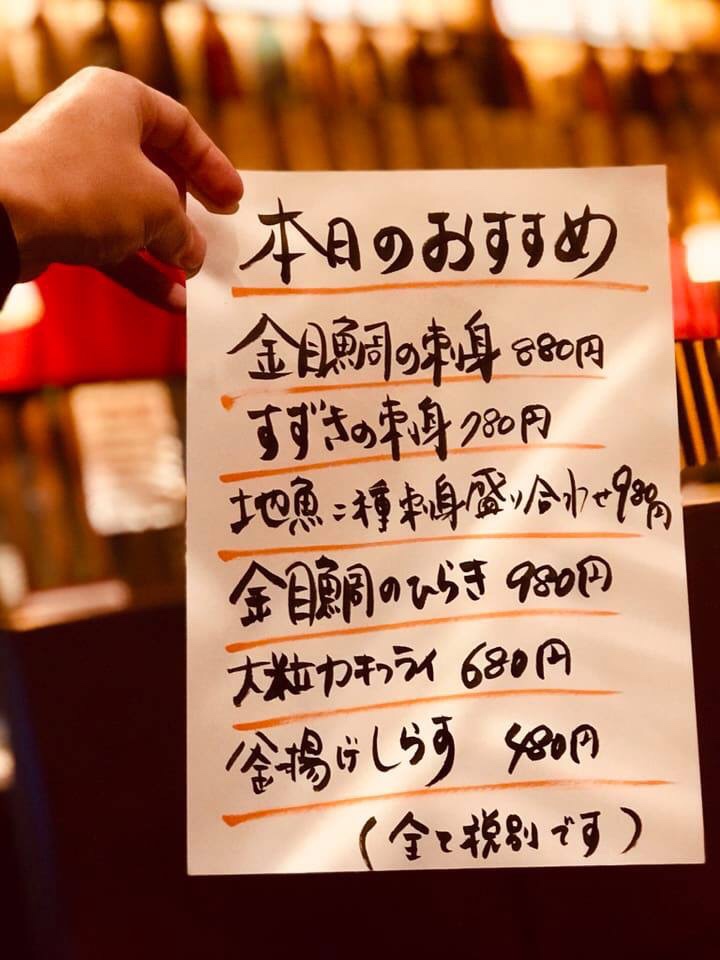 本日のおすすめ
金目鯛の刺身 880円
すずきの刺身 780円
地魚二種刺身盛り合わせ 980円
金目鯛のひらき 980円
大粒カキフライ 680円
釜揚げしらす 480円
(全て税別です)